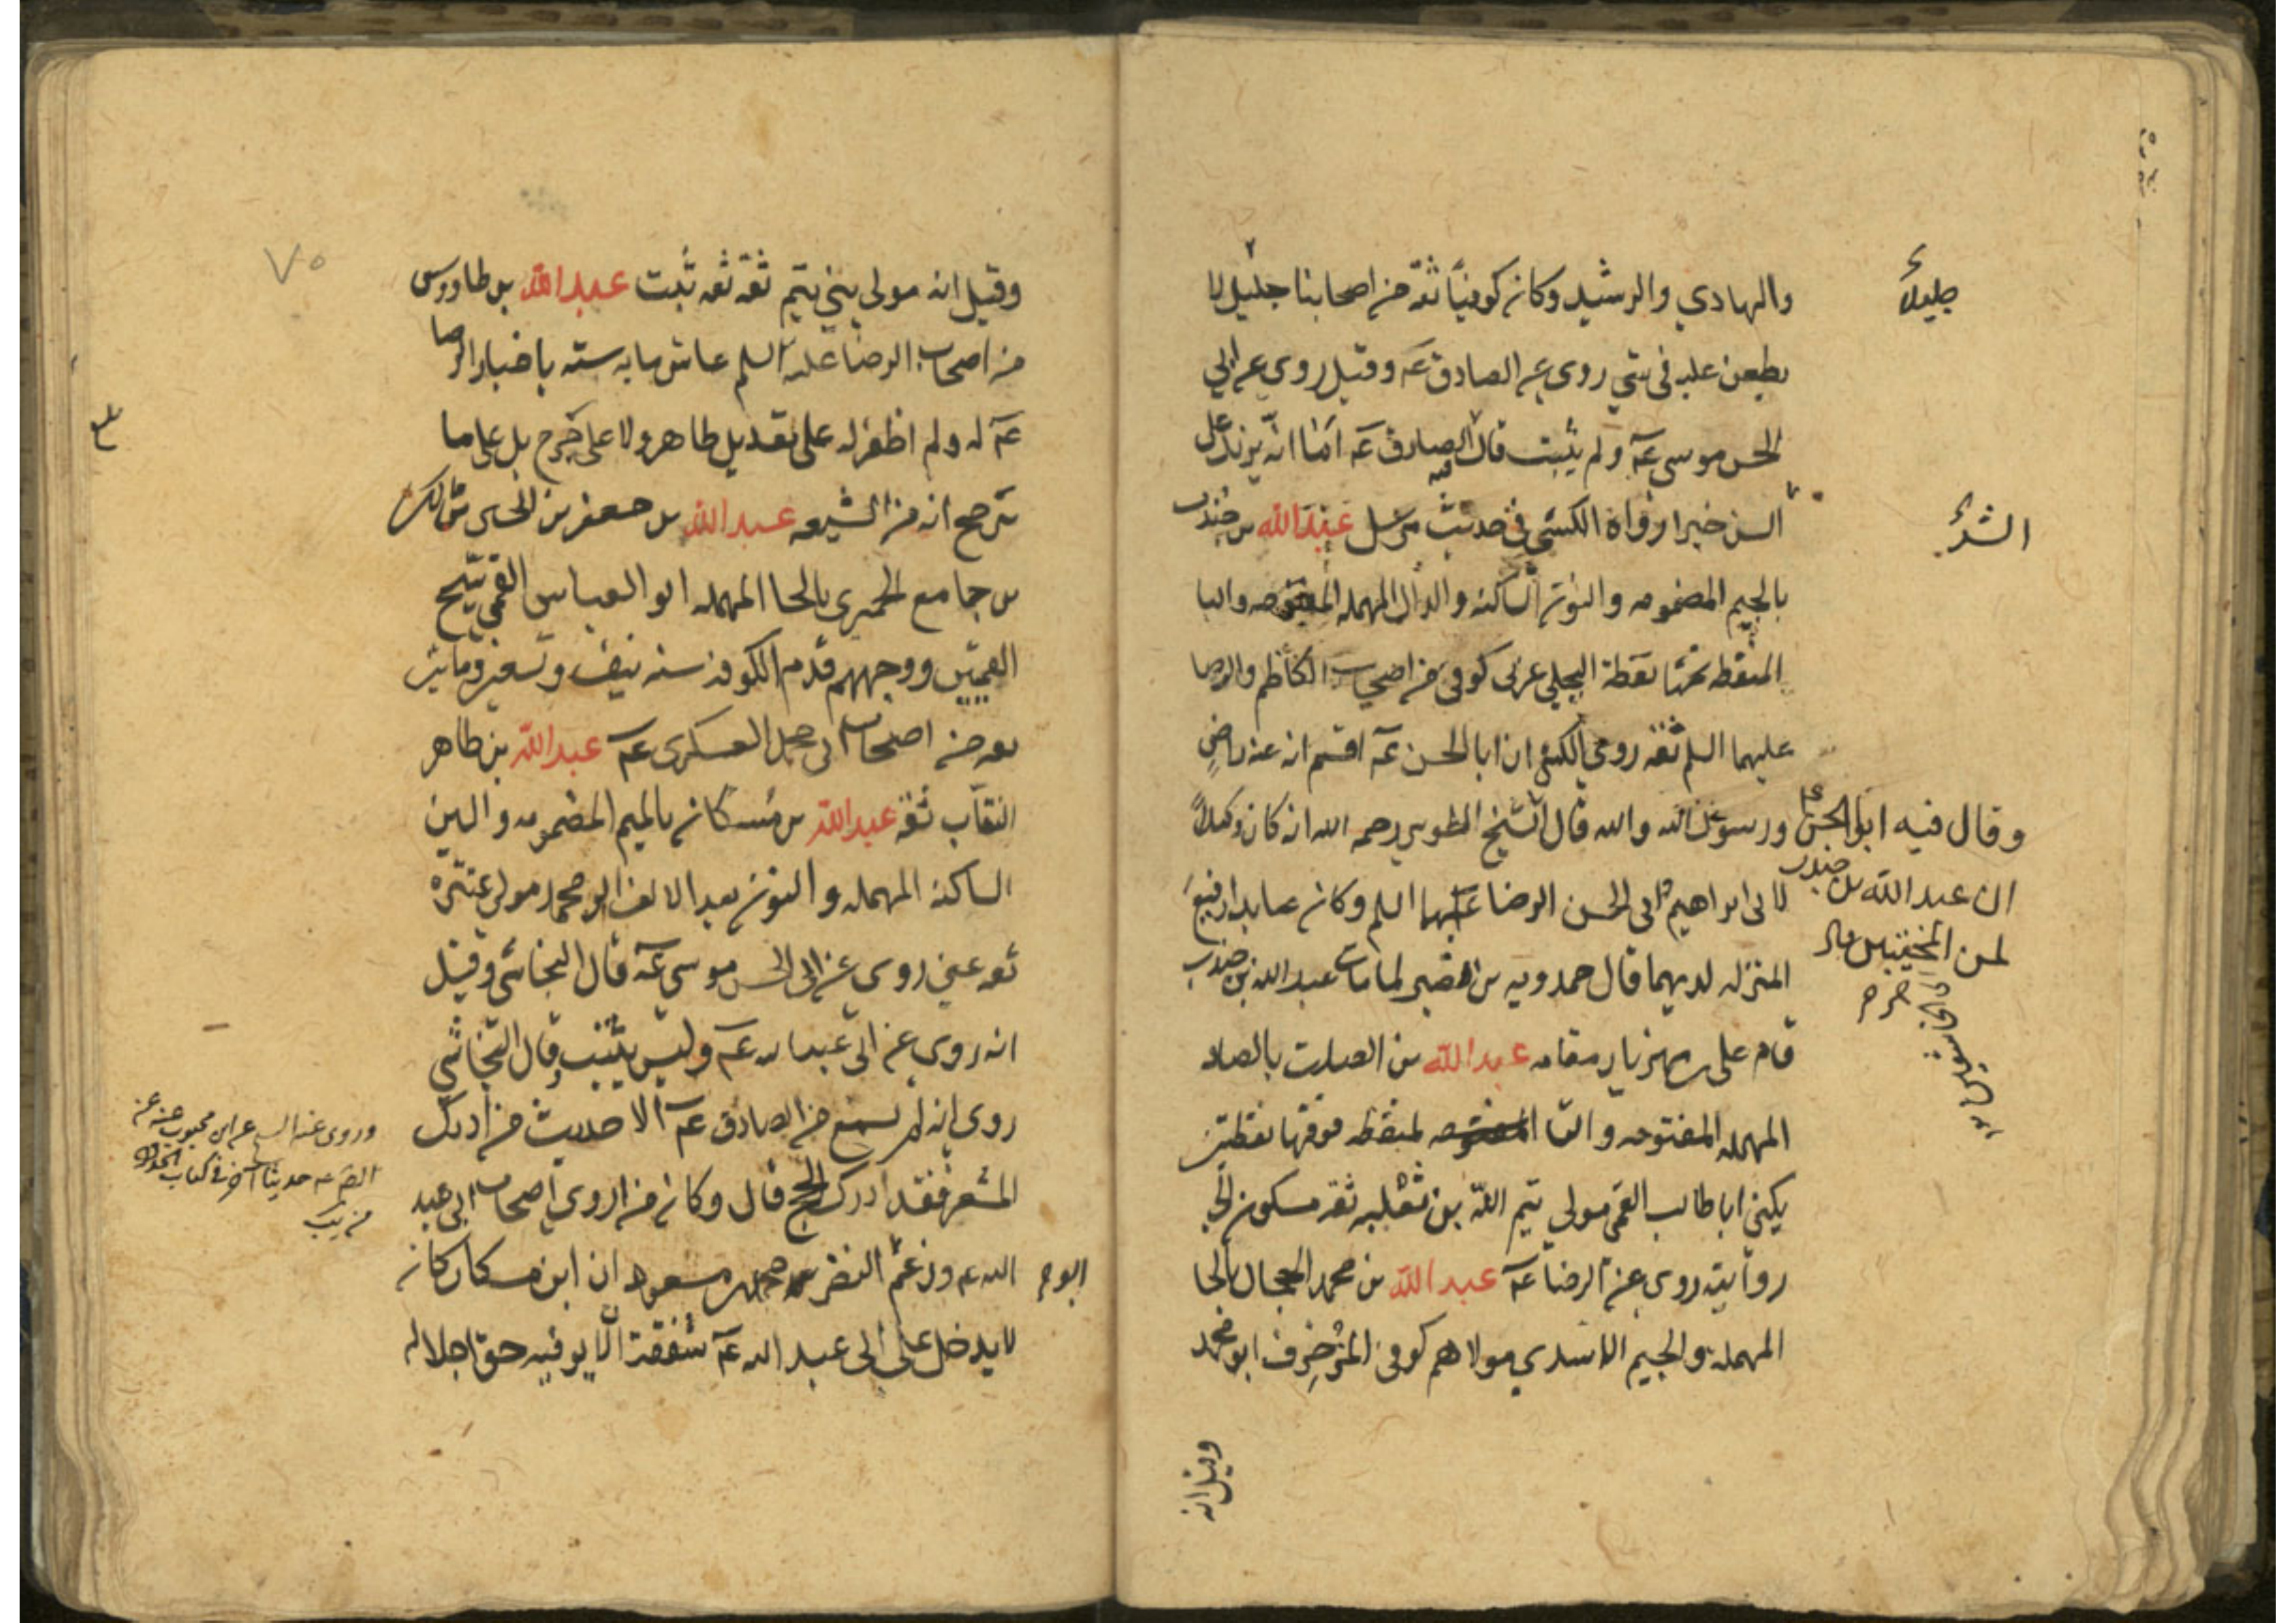 والهادي والرشيد وكان كوفيا ثقة من اصحابنا جليل لا
جليلاً
يطعن عليه في شي روى عن الصادق عَـ وقيل روى عن ابي
الحسن موسى عـَ ولم يثبت قال الصادق عَـ فيه امّا انّه يزيد كل
السن خيرا رواه الكشي في حديث مرسل عبدالله بن جندب
بالجيم المضمومه والنون الساكنه والدال المهمله المفتوحه والبا
المنقطه تحتها نقطة البجلي عربى كوفى من اصحاب الكاظم والرضا
عليهما السلم ثقه روى الكشي ان ابا الحسن عـَ اقسم انه عنه راضٍ
ورسول الله والله قال الشيخ الطوسي رحمه الله انه كان وكيلاً
لابى ابراهيم وابى الحسن الرضا عليهما السلم وكان عابدا رفيع
المنزله لديهما قال حمدويه بن نصير لما مات عبد الله بن جندب
قام على بن مهزيار مقامه عبد الله بن الصلت بالصاد
المهمله المفتوحه والتا المنقطه فوقها نقطتين
يكنى ابا طالب القمى مولى تيم الله بن ثعلبه ثقه مسكون الى
روايته روى عن الرضا عـَ عبد الله بن محمد الحجال بالحا
المهمله والجيم الاسدي مولاهم كوفى المزخرف ابو محمد
وقيل انه
وقال فيه ابو الحسن
ان عبد الله بن جندب
لمن المخبتين
وقيل انه مولى بني تيم ثقه ثقه ثبت عبد الله بن طاووس
من اصحاب الرضا عليه السلم عاش مايه سنه باخبار الرضا
عـَ له ولم اظفر له على تعديل طاهر ولا على جرح بل على ما
يترجح انه من الشيعه عبد الله بن جعفر بن الحسين بن مالك
بن جامع الحميرى بالحا المهمله ابو العباس القمي شيخ
القميين ووجههم قدم الكوفه سنه نيف وتسعين ومايتين
ثقه من اصحاب ابى محمد العسكرى عـَ عبد الله بن طاهر
النقاب ثقه عبد الله بن مسكان بالميم المضمومه والسين
الساكنه المهمله والنون بعد الالف ابو محمد مولى عنزه
ثقه عين روى عن ابى الحسن موسى عـَ قال النجاشي وقيل
انه روى عن ابى عبد الله عـَ وليس بثبت وقال النجاشي
روى انه لم يسمع من الصادق عـَ الا حديث من ادرك
المشعر فقد ادرك الحج قال وكان من اروى اصحاب ابى عبد
الله عـ وزعم ابو النضر محمد بن مسعود ان ابن مسكان كان
لا يدخل على ابى عبد الله عـَ شفقة الا يوفيه حق اجلاله
٧٥